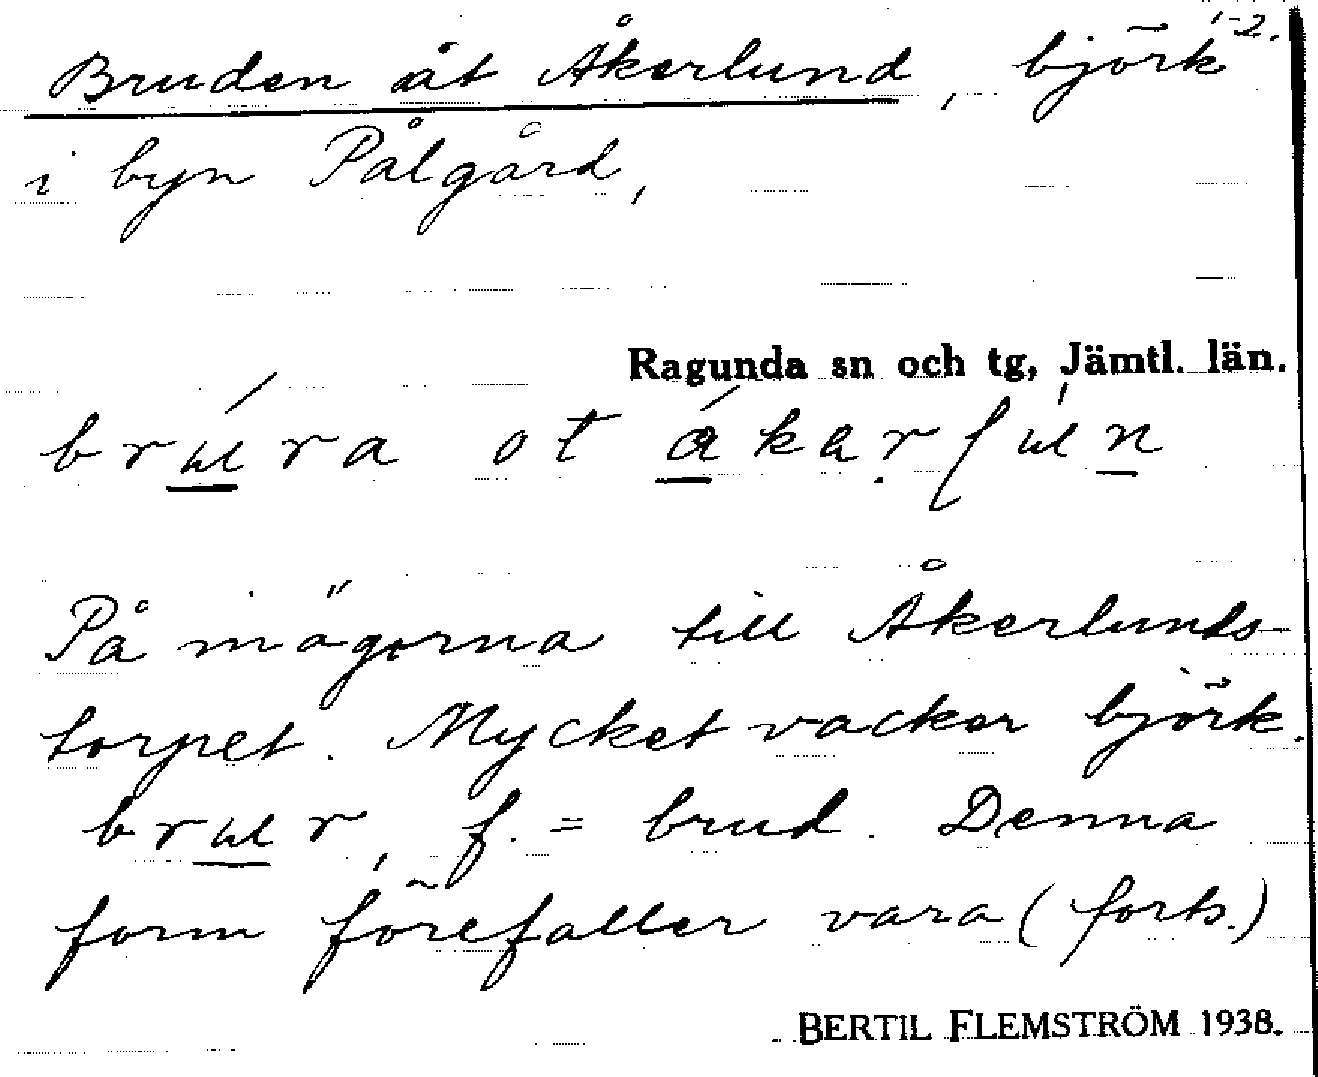 1-2.
Bruden åt Åkerlund, björk
i byn Pålgård,
Ragunda sn och tg, Jämtl. län.
På inägorna till Åkerlunds-
torpet. Mycket vacker björk.
brur, f. = brud. Denna
form förefaller vara (forts.)
BERTIL FLEMSTRÖM 1938.